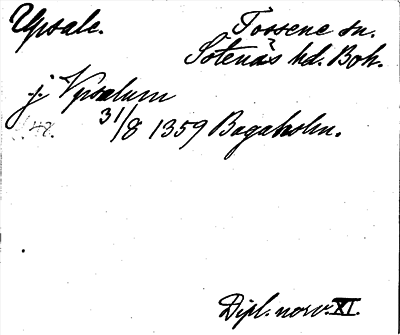 Upsale. Tossene sn.
Sotenäs hd. Boh.
j Vpsalum
31/8 1359 Bagaholm.
Dipl. norv. XI.